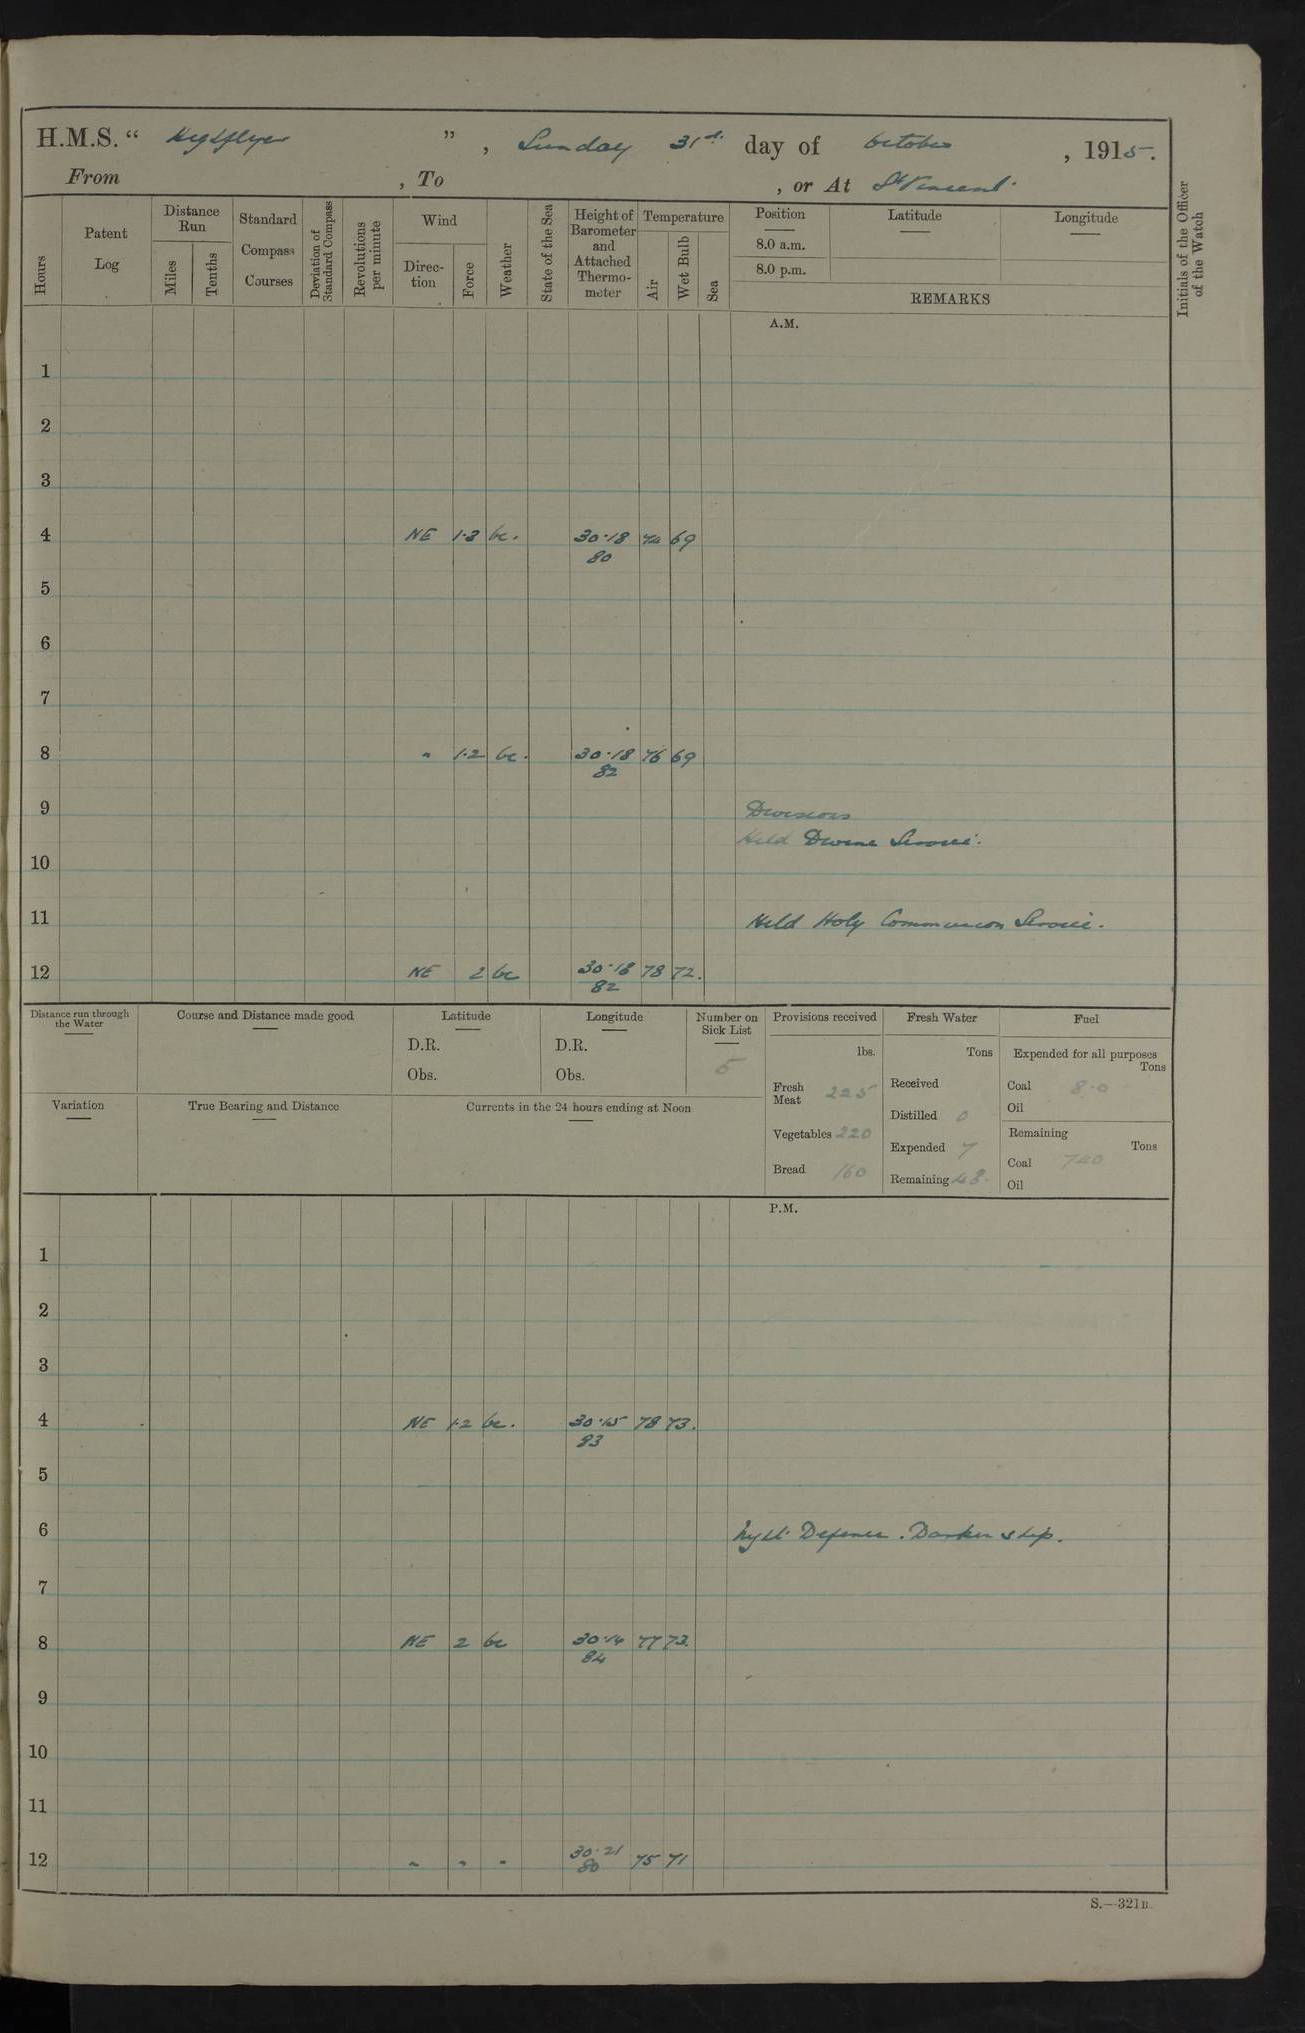 H.M.S. “ Highflyer ”, Sunday 31st. day of October, 1915.
From , To , or At St Vincent.
Hours
Patent Log
Distance Run
Miles
Tenths
Standard Compass Courses
Deviation of Standard Compass
Revolutions per minute
Wind
Direction
Force
Weather
State of the Sea
Height of Barometer and Attached Thermometer
Temperature
Air
Wet Bulb
Sea
Position
8.0 a.m.
8.0 p.m.
Latitude
Longitude
REMARKS
Initials of the Officer of the Watch
A.M.
1
2
3
4 NE 1·3 bc. 30·18 74 69
80
5
6
7
8 " 1·2 bc. 30·18 76 69
82
9 Divisions
Held Divine Service.
10
11 Held Holy Communion Service.
12 NE 2 bc 30·18 78 72.
82
Distance run through the Water
Course and Distance made good
Latitude
D.R.
Obs.
Longitude
D.R.
Obs.
Number on Sick List
5
Provisions received
lbs.
Fresh Meat 225
Vegetables 220
Bread 160
Fresh Water
Tons
Received
Distilled 0
Expended 7
Remaining 48.
Fuel
Expended for all purposes
Tons
Coal 8·0
Oil
Remaining
Tons
Coal 740
Oil
Variation
True Bearing and Distance
Currents in the 24 hours ending at Noon
P.M.
1
2
3
4 NE 1·2 bc. 30·15 78 73.
83
5
6 Night Defence. Darken ship.
7
8 NE 2 bc 30·14 77 73.
84
9
10
11
12 " " " 30·21 75 71
80
S.—321B.